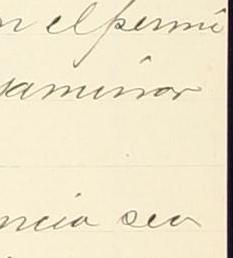 n el permi
xaminar
ncia sea